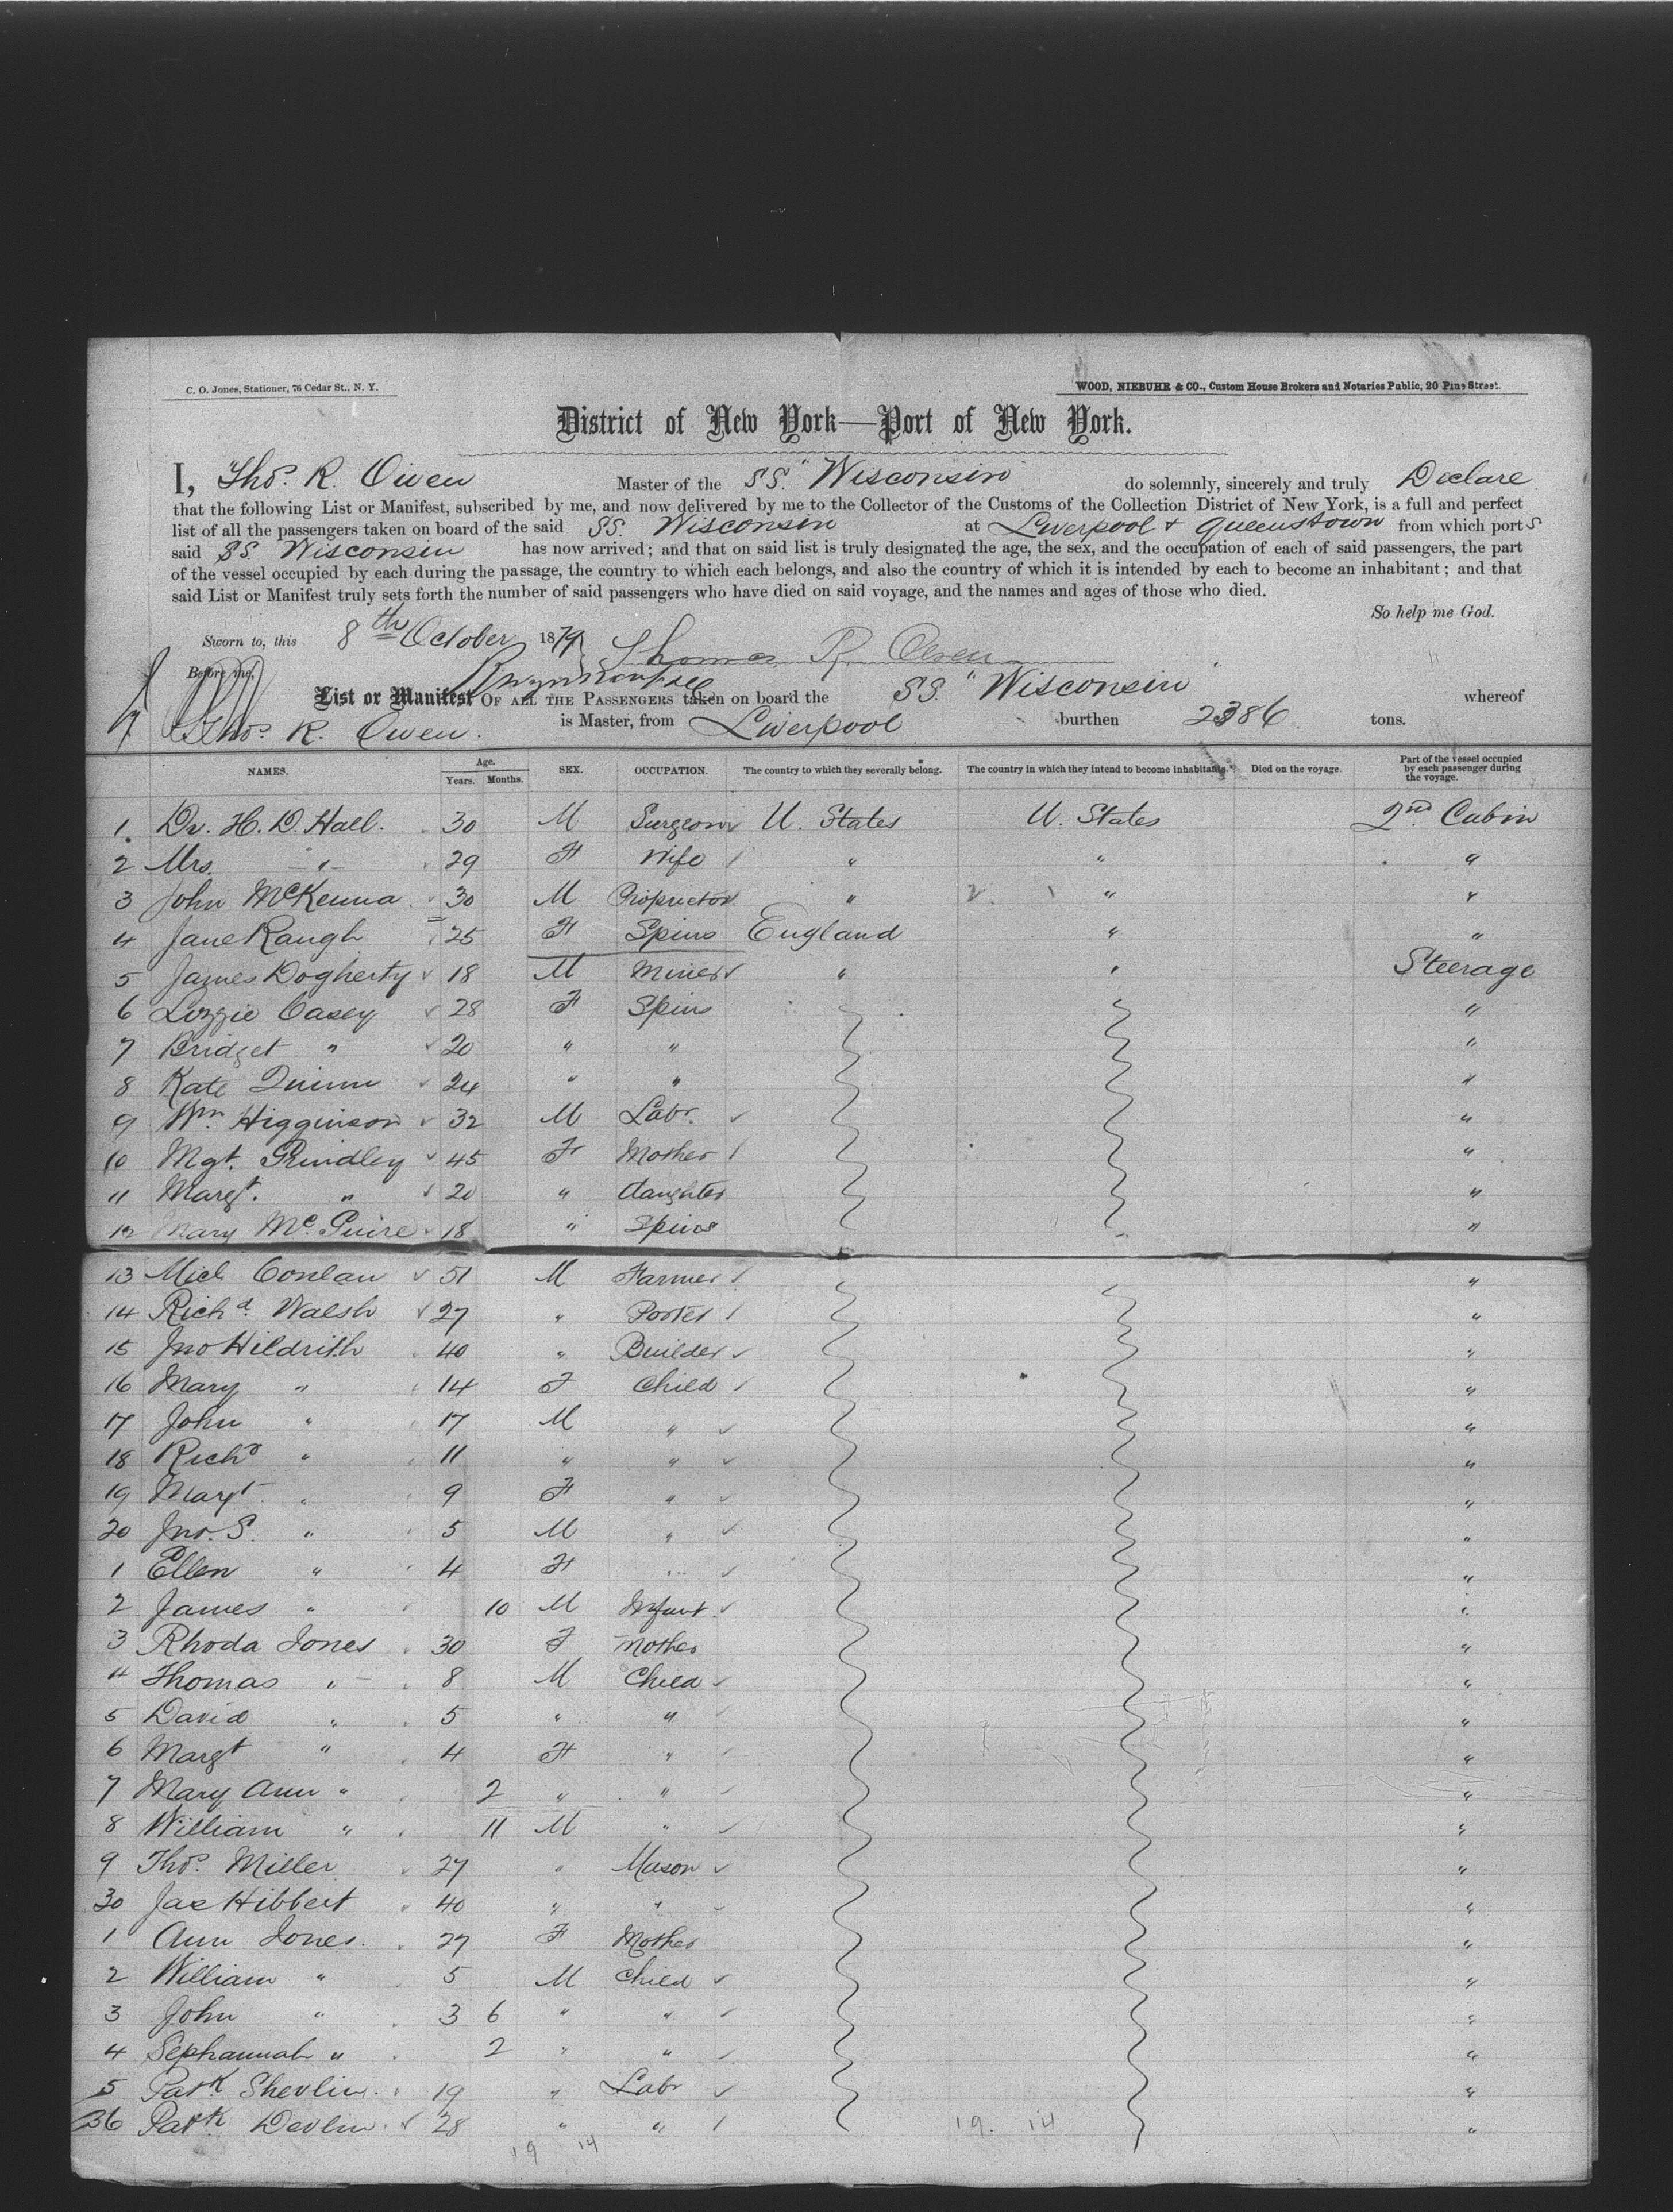 C. O. Jones, Stationer, 76 Cedar St., N. Y.
WOOD, NIEBUHR & CO., Custom House Brokers and Notaries Public, 20 Pine Street.
District of New York—Port of New York.
I, Thos. R. Owen Master of the SS. "Wisconsin" do solemnly, sincerely and truly Declare
that the following List or Manifest, subscribed by me, and now delivered by me to the Collector of the Customs of the Collection District of New York, is a full and perfect
list of all the passengers taken on board of the said SS. Wisconsin at Liverpool & Queenstown from which ports
said SS. Wisconsin has now arrived; and that on said list is truly designated the age, the sex, and the occupation of each of said passengers, the part
of the vessel occupied by each during the passage, the country to which each belongs, and also the country of which it is intended by each to become an inhabitant; and that
said List or Manifest truly sets forth the number of said passengers who have died on said voyage, and the names and ages of those who died.
So help me God.
Sworn to, this 8th October 1879 Thomas R. Owen
Before me,
List or Manifest OF ALL THE PASSENGERS taken on board the SS. "Wisconsin" whereof
Thos. R. Owen. is Master, from Liverpool burthen 2386 tons.
NAMES. Age. Years. Months. SEX. OCCUPATION. The country to which they severally belong. The country in which they intend to become inhabitants. Died on the voyage. Part of the vessel occupied by each passenger during the voyage.
1. Dr. H. D. Hall. 30 M Surgeon U. States U. States 2nd Cabin
2 Mrs. -"- 29 F Wife " " "
3 John McKenna 30 M Proprietor " " "
4 Jane Raugh 25 F Spins England " "
5 James Dogherty 18 M Miner " " Steerage
6 Lizzie Casey 28 F Spins "
7 Bridget " 20 " " "
8 Kate Quinn 24 " " "
9 Wm. Higginson 32 M Labr. "
10 Mgt. Grindley 45 F Mother "
11 Margt. " 20 " daughter "
12 Mary McGuire 18 " Spins "
13 Mich Conlan 51 M Farmer "
14 Richd. Walsh 27 " Porter "
15 Jno Hildrith 40 " Builder "
16 Mary " 14 F Child "
17 John " 17 M " "
18 Richd " 11 " " "
19 Margt " 9 F " "
20 Jno. S. " 5 M " "
1 Ellen " 4 F " "
2 James " 10 M Infant "
3 Rhoda Jones 30 F Mother "
4 Thomas " 8 M Child "
5 David " 5 " " "
6 Margt " 4 F " "
7 Mary Ann " 2 " " "
8 William " 11 M " "
9 Thos. Miller 27 " Mason "
30 Jas Hibbert 40 " " "
1 Ann Jones. 27 F Mother "
2 William " 5 M Child "
3 John " 3 6 " " "
4 Sephannah " 2 " " "
5 Patk Shevlin. 19 " Labr "
36 Patk Devlin. 28 " " "
19. 14
19 14